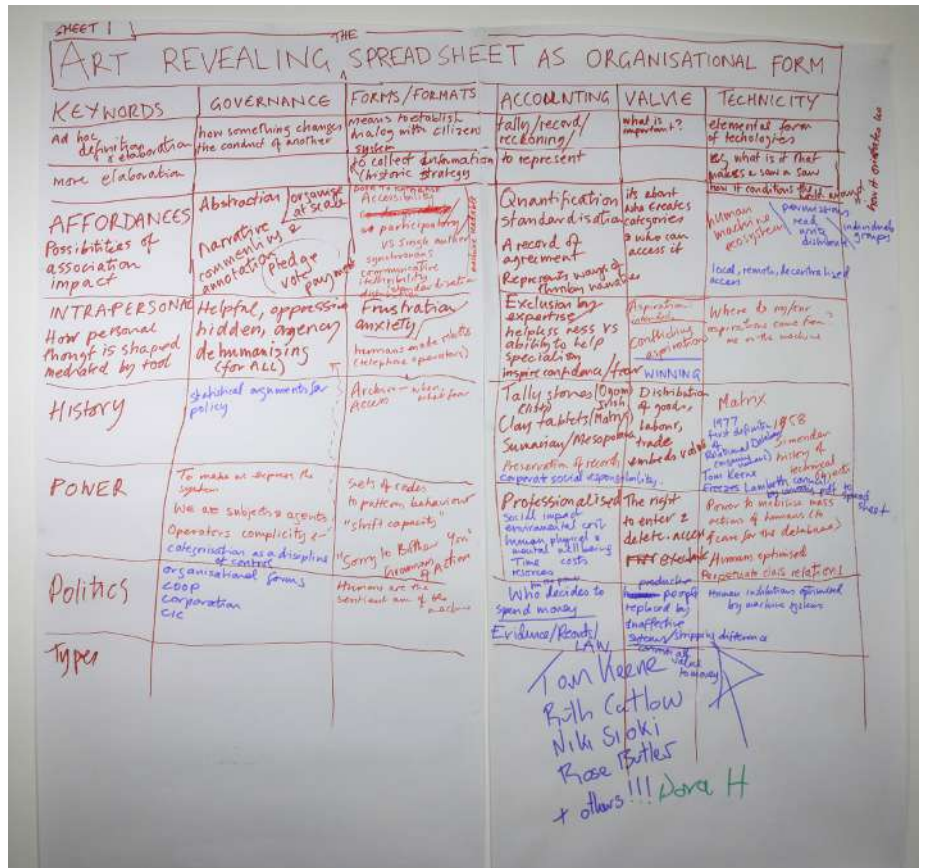 SHEET 1
THE
ART REVEALING SPREADSHEET AS ORGANISATIONAL FORM
KEYWORDS
GOVERNANCE
FORMS/FORMATS
ACCOUNTING
VALUE
TECHNICITY
Ad hoc
definition
& elaboration
how something changes
the conduct of another
means to establish
dialog with citizens
system
tally/record/
reckoning/
what is
important?
elemental form
of techologies
more elaboration
to collect information
(historic strategy)
to represent
what is it that
makes a saw a saw
how it conditions the
AFFORDANCES
Possibilities of
association
impact
Abstraction / organise
at scale
narrative
commenting &
annotation
pledge
vote payment
Accessibility
participatory
vs single author
synchronous
communicative
Quantification
standardisation
A record of
agreement
Represents ways of
its about
who creates
categories
& who can
access it
human
machine
ecosystem
permissions
read
write
distribute
individuals
groups
local, remote, decentralised
access
INTRA-PERSONAL
How personal
thougt is shaped
mediated by tool
Helpful, oppressing
hidden, agency
dehumanising
(for ALL)
Frustration
anxiety
humans made robotic
(telephone operators)
Exclusion by
expertise
helplessness vs
ability to help
specialism
inspire confidence/fear
Aspiration
Conflicting
aspirations
WINNING
Where do my/our
aspirations come from?
me or the machine
History
statistical arguments for
policy
Archive - when,
Access
Tally stones (Ogom)
Irish
Clay tablets (Matrix)
Sumarian/Mesopotamia
Preservation of records
corporate social responsibility
Distribution
of goods,
labour,
trade
embeds value
Matrix
1977
first definition
of
Relational Database
Tom Keene
1958
Simondon
history of
technical
objects
POWER
To make us
system
We are subjects & agents
Operators complicity
categorisation as a discipline
of control
Sets of codes
to pattern behaviour
"shift capacity"
"Sorry to Bother You"
Grammars
of Action
Professionalised
Social impact
environmental
human, physical &
mental wellbeing
Time costs
resources
The right
to enter &
delete. access
Power to mobilise mass
actions of humans (to
care for the database)
Human optimised
Perpetuate class relations
Politics
organisational forms
COOP
Corporation
CIC
Humans are the
sentient arm of the
machine
Who decides to
spend money
Evidence/Records/
LAW
productive
people
replaced by
inaffective
systems/stripping difference
value
to money
Human inhibitions optimised
by machine systems
Types
Tom Keene
Ruth Catlow
Niki Sioki
Rose Butler
+ others!!! Dora H